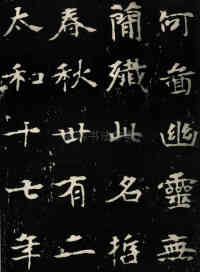 何啚幽靈無
簡殲此名哲
春秋卅有二
太和十七年